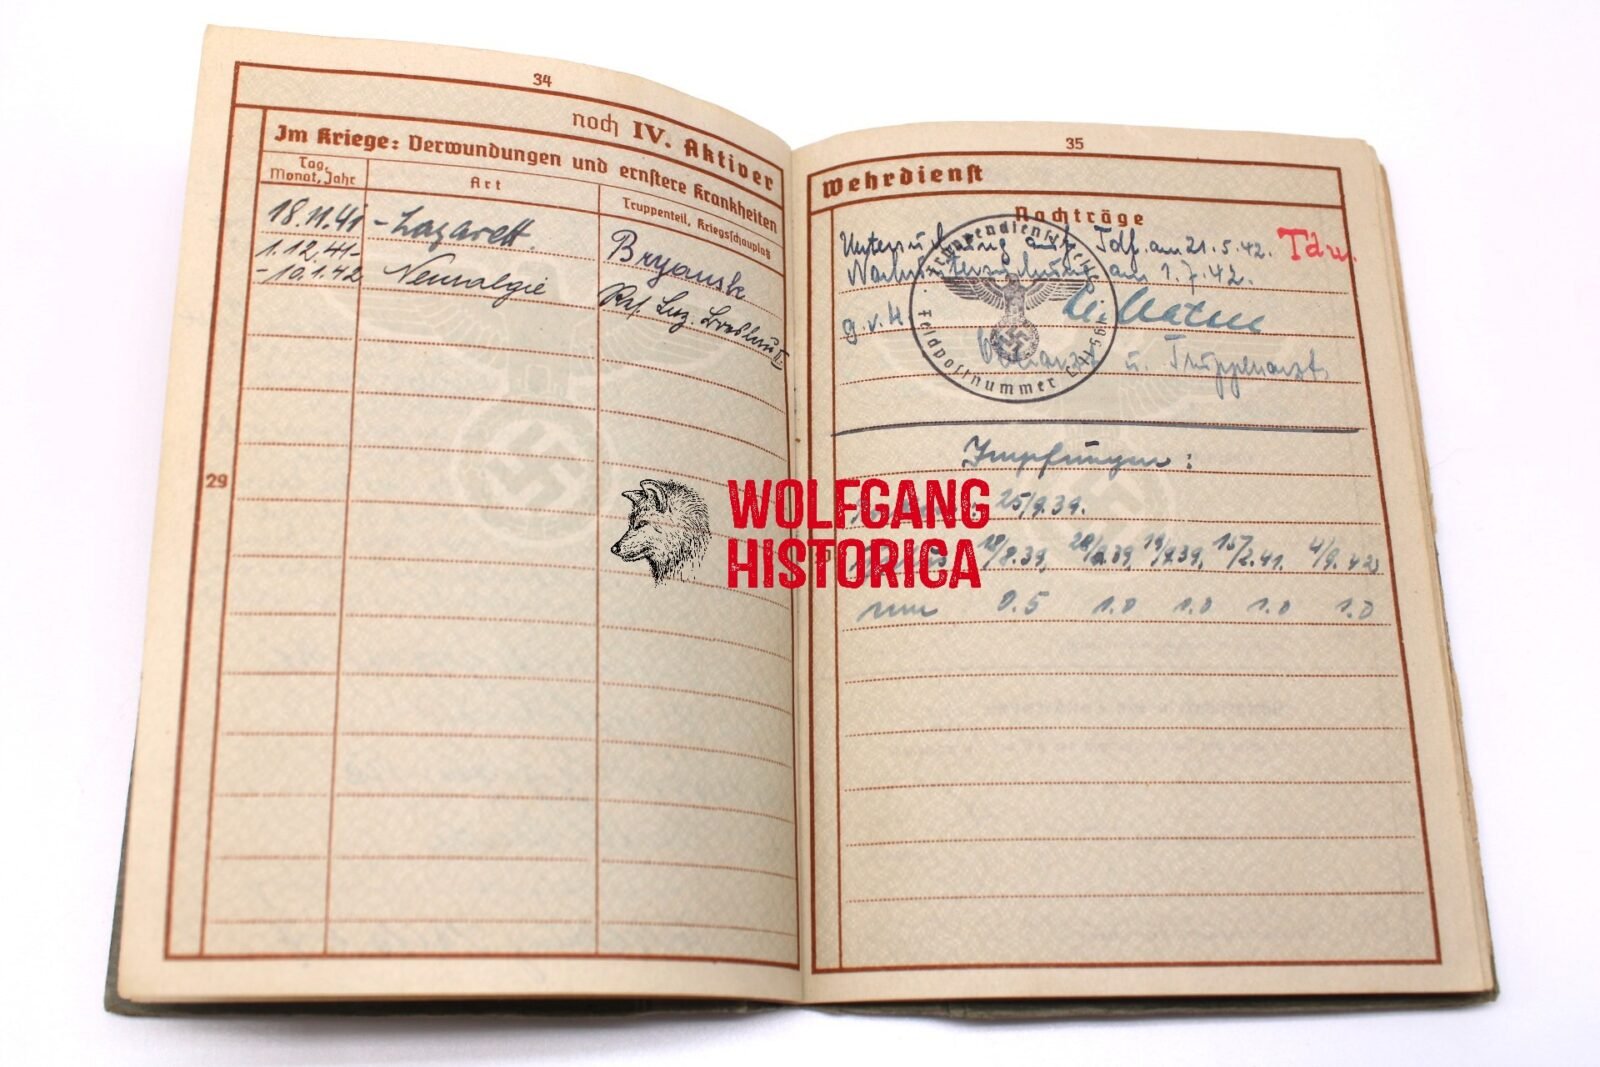 34
noch IV. Aktiver
Im Kriege: Verwundungen und ernstere Krankheiten
Tag, Monat, Jahr
Art
Truppenteil, Kriegsschauplatz
18.11.41 - Lazarett.
Bryansk
1.12.41-
-10.1.42
Neuralgie
Res. Laz. Breslau II.
29
35
Wehrdienst
Nachträge
Untersuchung auf Tdf. am 21.5.42. Tdu.
Nachuntersuchung am 1.7.42.
g.v.H.
u. Truppenarzt
Feldpostnummer
Impfungen:
25/9.39.
15/2.41.
0.5 1.0 1.0 1.0 1.0
WOLFGANG
HISTORICA